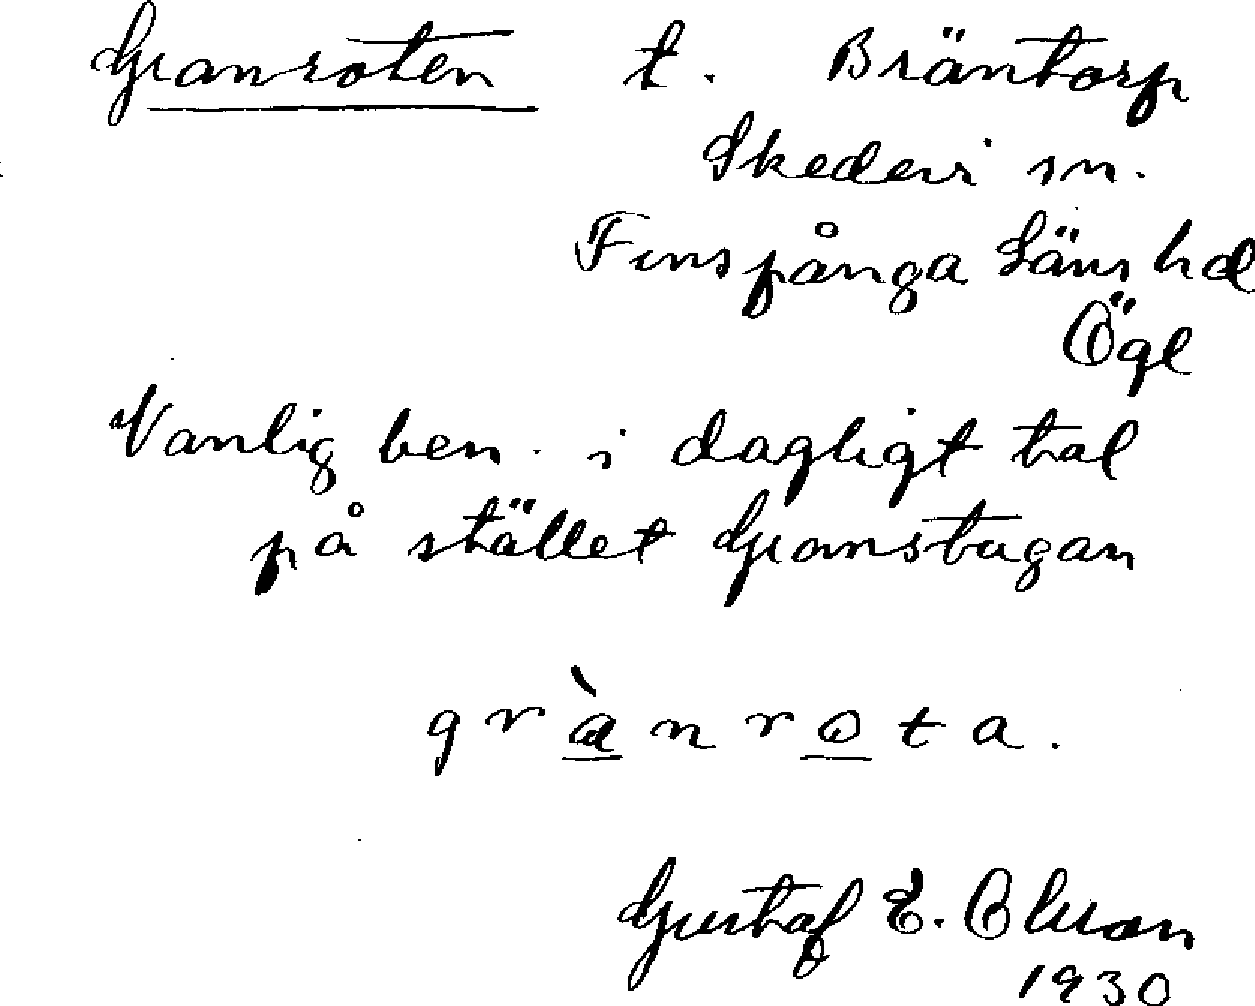 Granroten t. Bräntorp
Skedevi sn.
Finspånga Läns hd
Ögl
Vanlig ben. i dagligt tal
på stället Granstugan
grànrota.
Gustaf E. Olsson
1930